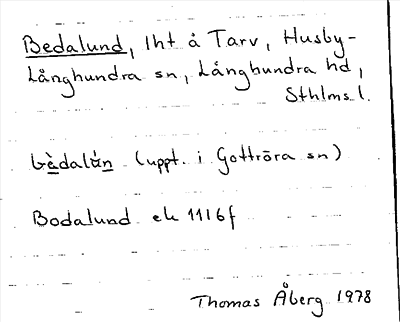 Bedalund, lht å Tarv, Husby-
Långhundra sn, Långhundra hd,
Sthlms l.
bèdalún (uppt. i Gottröra sn)
Bodalund ek 11I6f
Thomas Åberg 1978